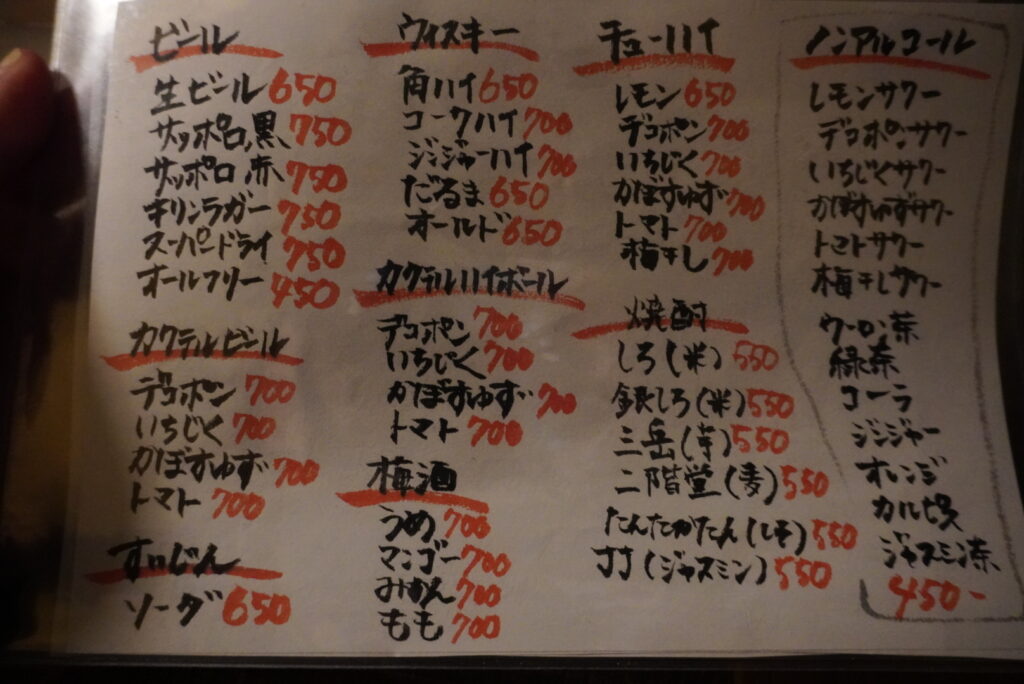 ビール
生ビール 650
サッポロ黒 750
サッポロ赤 750
キリンラガー 750
スーパードライ 750
オールフリー 450
カクテルビール
デコポン 700
いちじく 700
かぼすゆず 700
トマト 700
すいじん
ソーダ 650
ウィスキー
角ハイ 650
コークハイ 700
ジンジャーハイ 700
だるま 650
オールド 650
カクテルハイボール
デコポン 700
いちじく 700
かぼすゆず 700
トマト 700
梅酒
うめ 700
マンゴー 700
みかん 700
もも 700
チューハイ
レモン 650
デコポン 700
いちじく 700
かぼすゆず 700
トマト 700
梅干し 700
焼酎
しろ(米) 550
銀しろ(米) 550
三岳(芋) 550
二階堂(麦) 550
たんたかたん(しそ) 550
JJ(ジャスミン) 550
ノンアルコール
レモンサワー
デコポンサワー
いちじくサワー
かぼすゆずサワー
トマトサワー
梅干しサワー
ウーロン茶
緑茶
コーラ
ジンジャー
オレンジ
カルピス
ジャスミン茶
450-